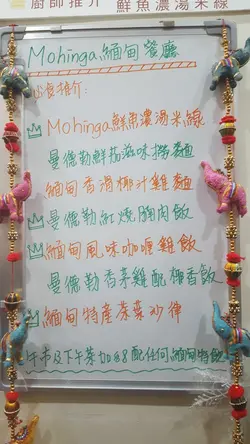 廚師推介 鮮魚濃湯米線
Mohinga緬甸餐廳
必食推介:
Mohinga鮮魚濃湯米線
曼德勒鮮茄滋味撈麵
緬甸香滑椰汁雞麵
曼德勒紅燒腩肉飯
緬甸風味咖喱雞飯
曼德勒香茅雞配椰香飯
緬甸特產茶葉沙律
午市及下午茶加$8配任何緬甸特飲